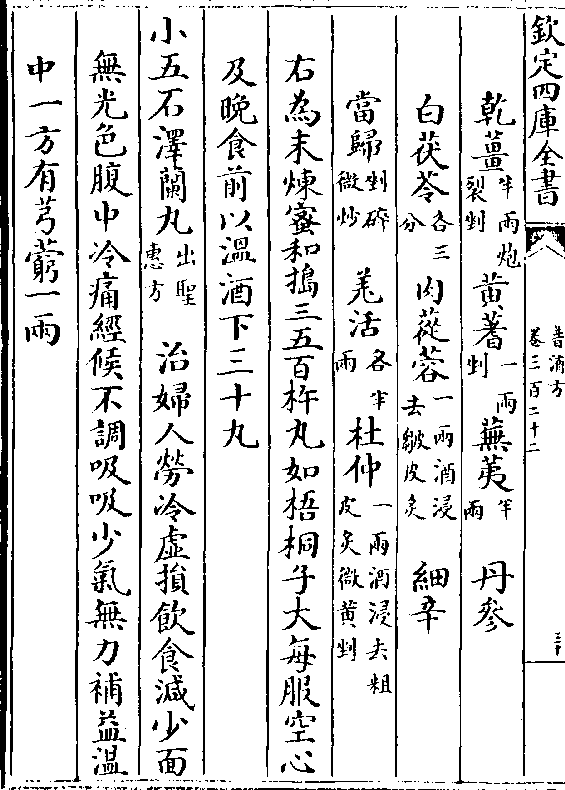 欽定四庫全書
普濟方
卷三百二十二
三十
乾薑半兩炮裂剉 黃蓍一兩剉 蕪荑半兩 丹參
白茯苓各三分 肉蓯蓉一兩酒浸去皺皮炙 細辛
當歸剉碎微炒 羌活各半兩 杜仲一兩酒浸去粗皮炙微黃剉
右為末煉蜜和搗三五百杵丸如梧桐子大每服空心
及晚食前以溫酒下三十九
小五石澤蘭丸出聖惠方 治婦人勞冷虛損飲食減少面
無光色腹中冷痛經候不調吸吸少氣無力補益溫
中一方有芎藭一兩